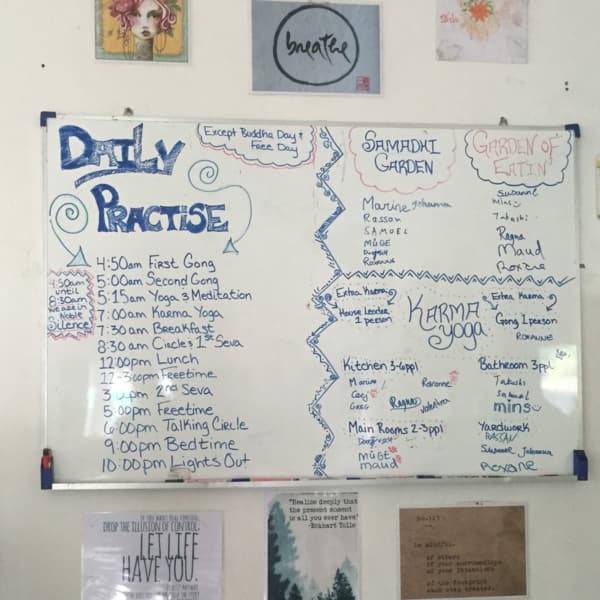 breathe
DAILY
PRACTISE
Except Buddha Day +
Free Day
4:50am First Gong
5:00am Second Gong
5:15am Yoga & Meditation
7:00am Karma Yoga
7:30am Breakfast
8:30am Circle & 1st Seva
12:00pm Lunch
12-3:00pm Freetime
3:00pm 2nd Seva
5:00pm Freetime
6:00pm Talking Circle
9:00pm Bedtime
10:00pm Lights Out
4:50am
until
8:30am
we are in
Noble
Silence!
SAMADHI
GARDEN
Marine Johanna
Rassan
SAMUEL
MÜGE
Roxanne
GARDEN OF
EATIN'
Susanne
mins
Takushi
Ragna
Maud
Roxane
KARMA
YOGA
Extra Karma
House Leader
1 person
Extra Karma
Gong 1 person
ROXANNE
Kitchen 3-4ppl
Marine Roxanne
Greg Ragna
Main Rooms 2-3ppl
MÜGE
maud
Bathroom 3ppl
Takushi
Samuel
mins
Yardwork
RASSAN
Susanne Johanna
Roxane
IF YOU WANT REAL CONTROL,
DROP THE ILLUSION OF CONTROL;
LET LIFE
HAVE YOU.
"Realise deeply that
the present moment
is all you ever have"
-Eckhart Tolle
be mindful.
of others
of your surroundings
of your
of the footprint
each step creates.